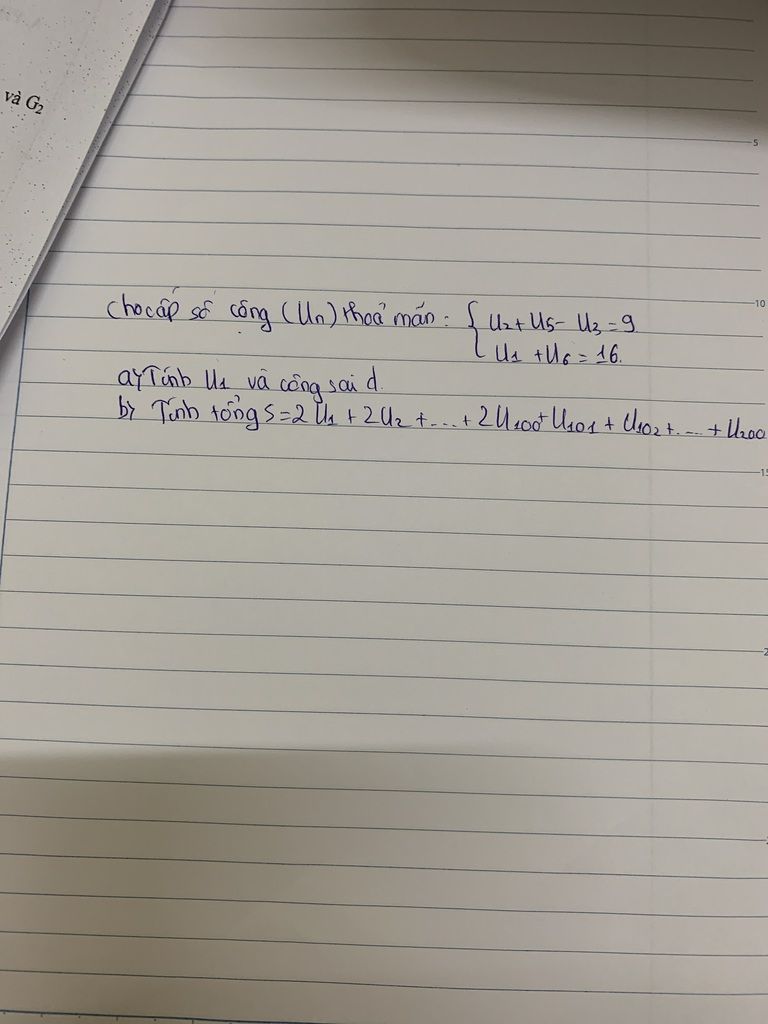 và G₂
5
10
Cho cấp số cộng (Un) thoả mãn: { U₂ + U₅ - U₃ = 9
U₁ + U₆ = 16.
a, Tính U₁ và công sai d.
b, Tính tổng S = 2U₁ + 2U₂ + ... + 2U₁₀₀ + U₁₀₁ + U₁₀₂ + ... + U₂₀₀
15
2